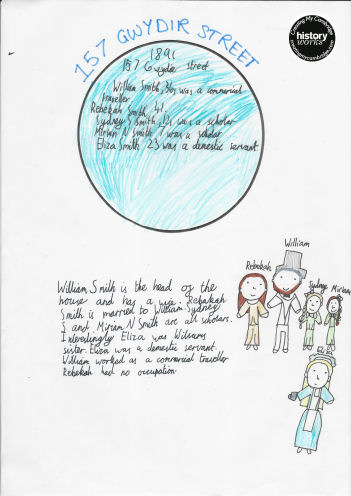 157 GWYDIR STREET
Creating My Cambridge
history
works
1891
157 Gwydir street
William Smith, 36, was a commercial
traveller
Rebekah Smith, 41.
Sydney S Smith, 12, was a scholar
Miriam N Smith 7 was a scholar
Eliza Smith 23 was a domestic servant
William
Rebekah
Sydney Miriam
Eliza
William Smith is the head of the
house and has a wife. Rebekah
Smith is married to William. Sydney
S and Mirian N Smith are all scholars.
Interestingly Eliza was Wiliams
sister. Eliza was a domestic servant.
William worked as a commercial traveller
Rebekah had no occupation